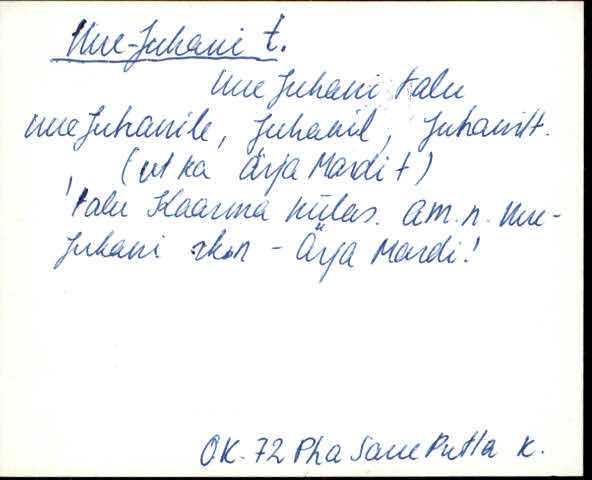 Uue-Juhani t.
uueJuhani talu
uueJuhanile, Juhanil, Juhanilt.
(vt ka Ärja Mardi t)
talu Kaarma külas. Am. n. Uue-
Juhani rkn - Ärja Mardi!
OK. 72 Pha Saue Putla k.